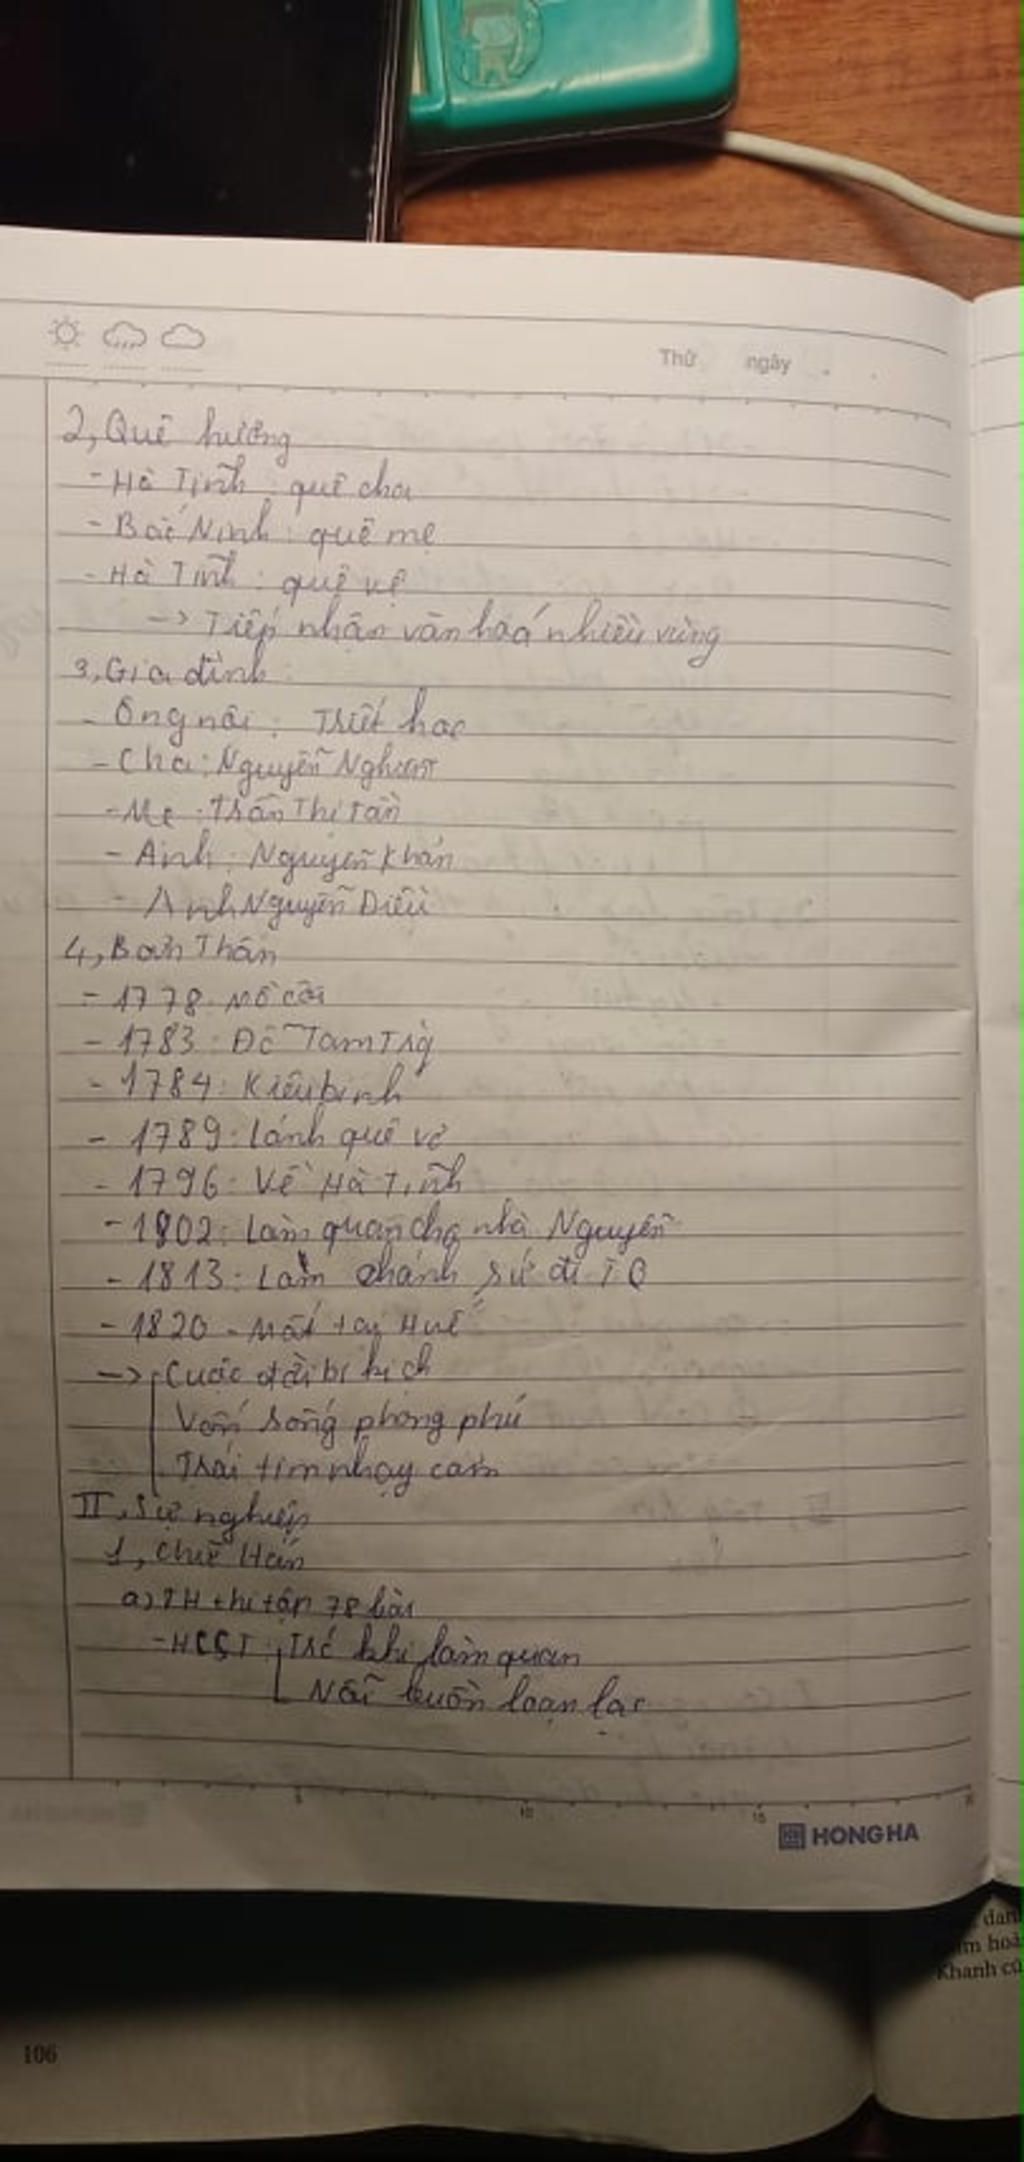 Thứ ngày
2, Quê hương
- Hà Tĩnh : quê cha
- Bắc Ninh : quê mẹ
- Hà Tĩnh : quê vợ
-> Tiếp nhận văn hoá nhiều vùng
3, Gia đình :
- Ông nội : Triết học
- Cha : Nguyễn Nghiễm
- Mẹ : Trần Thị Tần
- Anh : Nguyễn Khản
- Anh Nguyễn Điều
4, Bản Thân
- 1778. mồ côi
- 1783 : Đỗ Tam Trg
- 1784 : Kiêu binh
- 1789 : Lánh quê vợ
- 1796 : Về Hà Tĩnh
- 1802 : Làm quan cho nhà Nguyễn
- 1813 : Làm chánh sứ đi TQ
- 1820 - Mất tại Huế
-> Cuộc đời bi kịch
Vốn sống phong phú
Trái tim nhạy cảm
II, Sự nghiệp
1, Chữ Hán
a) TH thi tập 78 bài
- HCST : Trc khi làm quan
Nỗi buồn loạn lạc
5 10 15
HONG HA
106
dan
hoà
Khanh củ